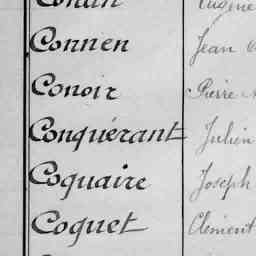 Conan Eugène
Connen Jean
Conoir Pierre
Conquérant Julien
Coquaire Joseph
Coquet Clément